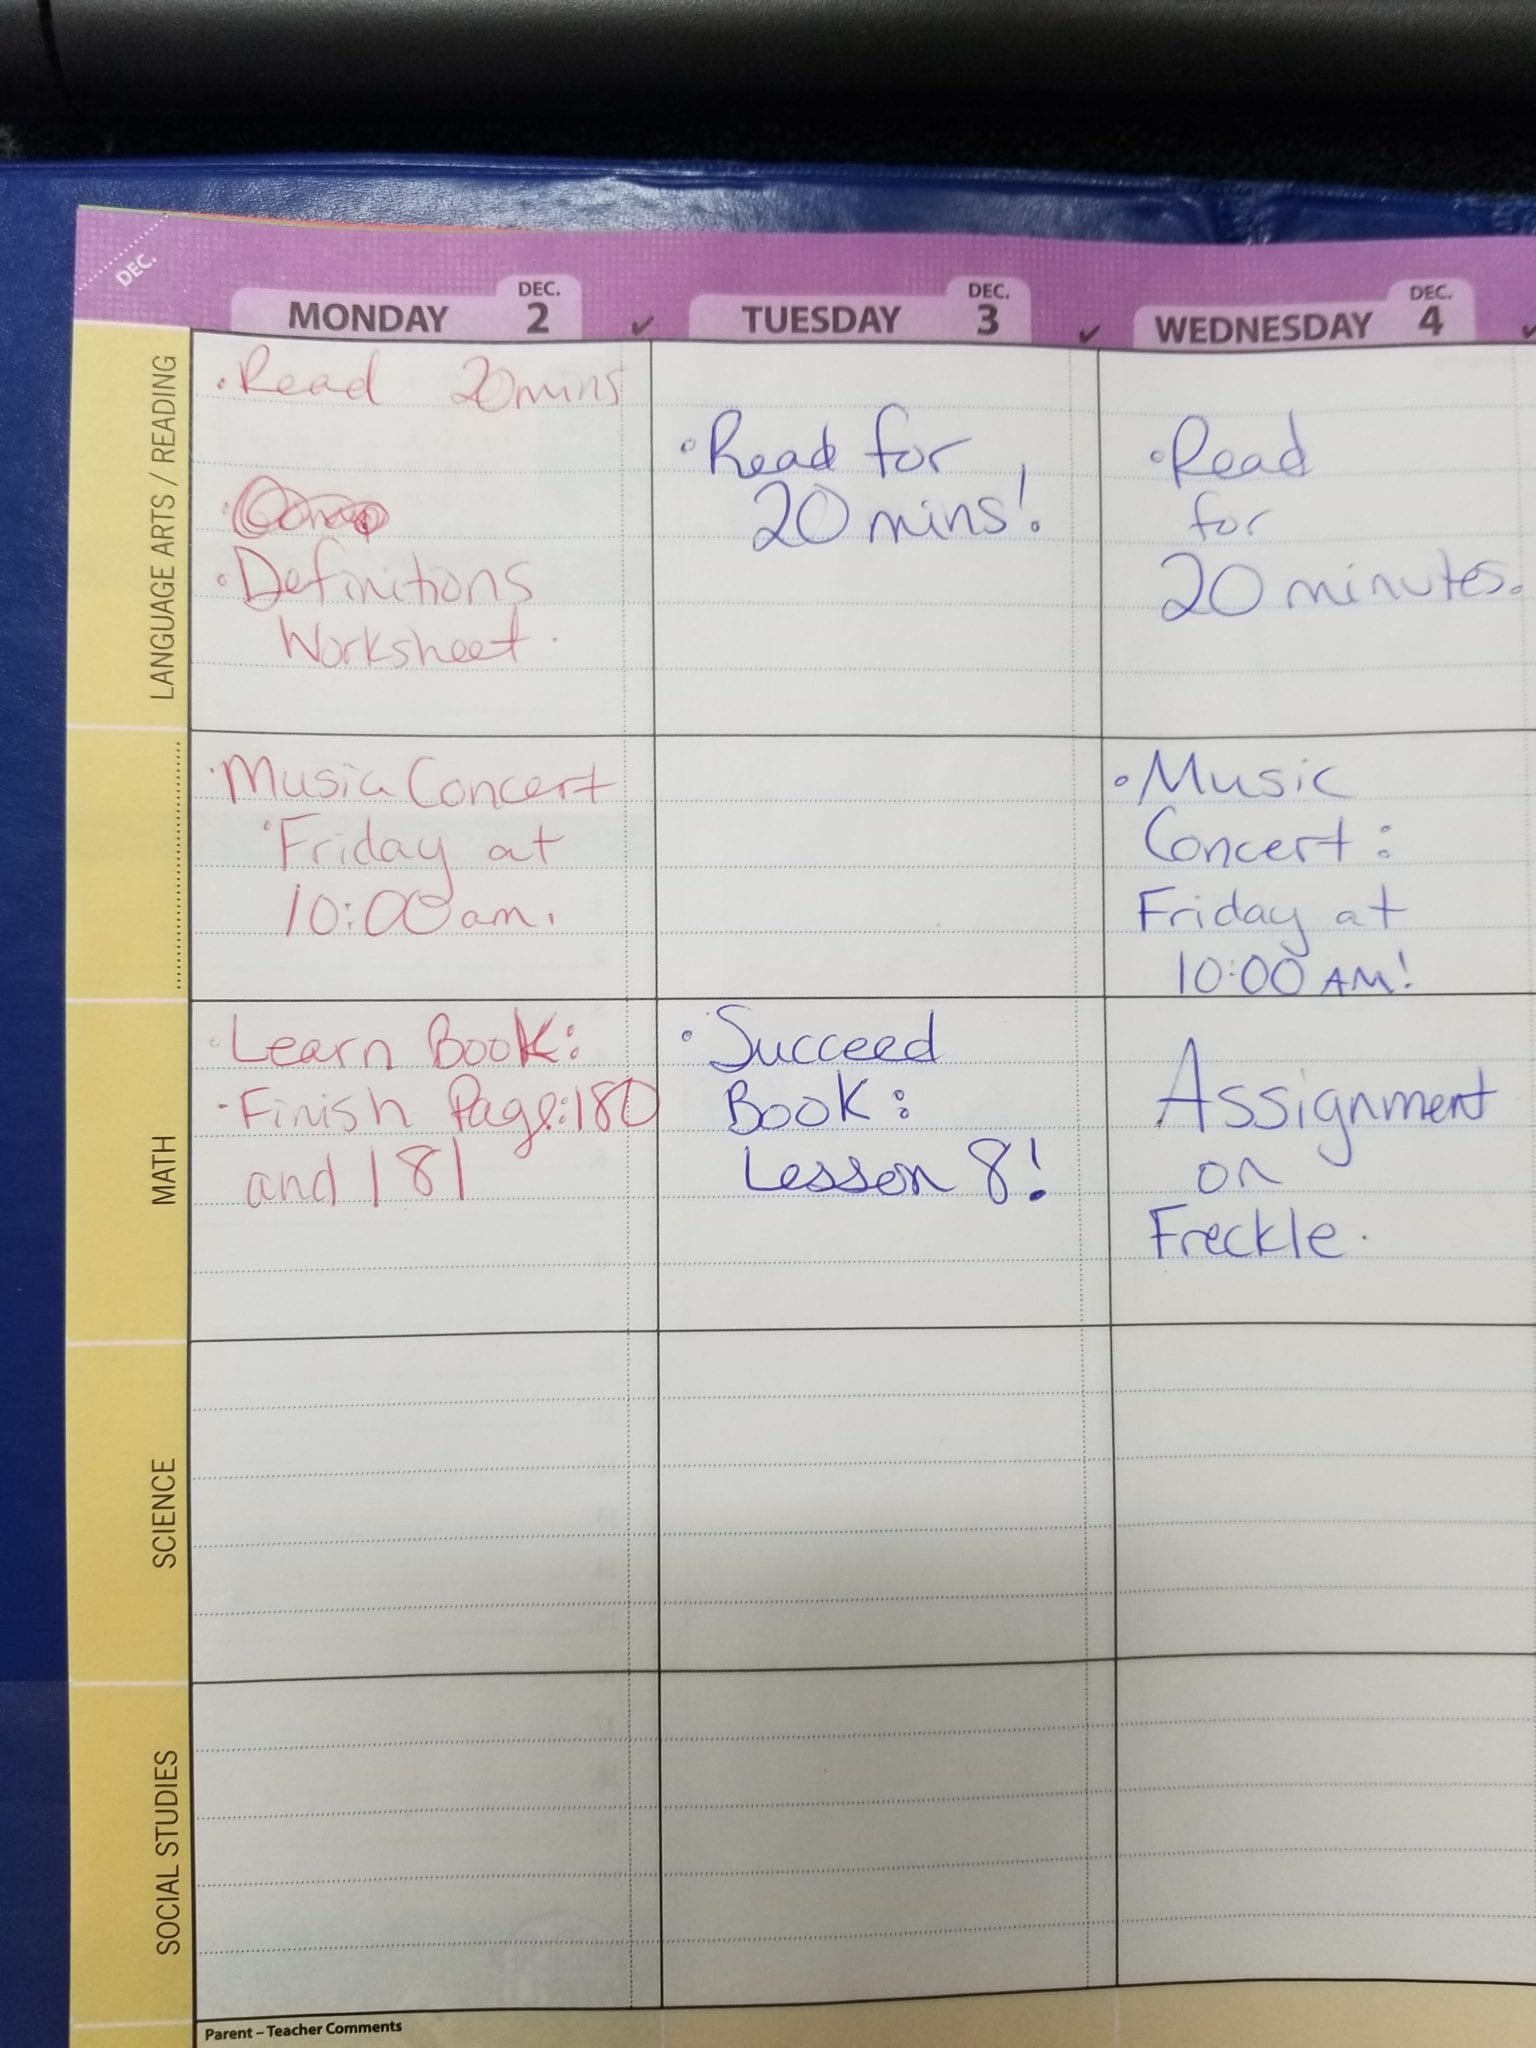 DEC.
MONDAY DEC. 2 ✓
TUESDAY DEC. 3 ✓
WEDNESDAY DEC. 4 ✓
LANGUAGE ARTS / READING
• Read 20mins
• Definitions
Worksheet.
• Read for
20 mins!
• Read
for
20 minutes.
• Music Concert
• Friday at
10:00am.
• Music
Concert:
Friday at
10:00 AM!
MATH
• Learn Book:
- Finish Page:180
and 181
• Succeed
Book:
Lesson 8!
Assignment
on
Freckle.
SCIENCE
SOCIAL STUDIES
Parent – Teacher Comments